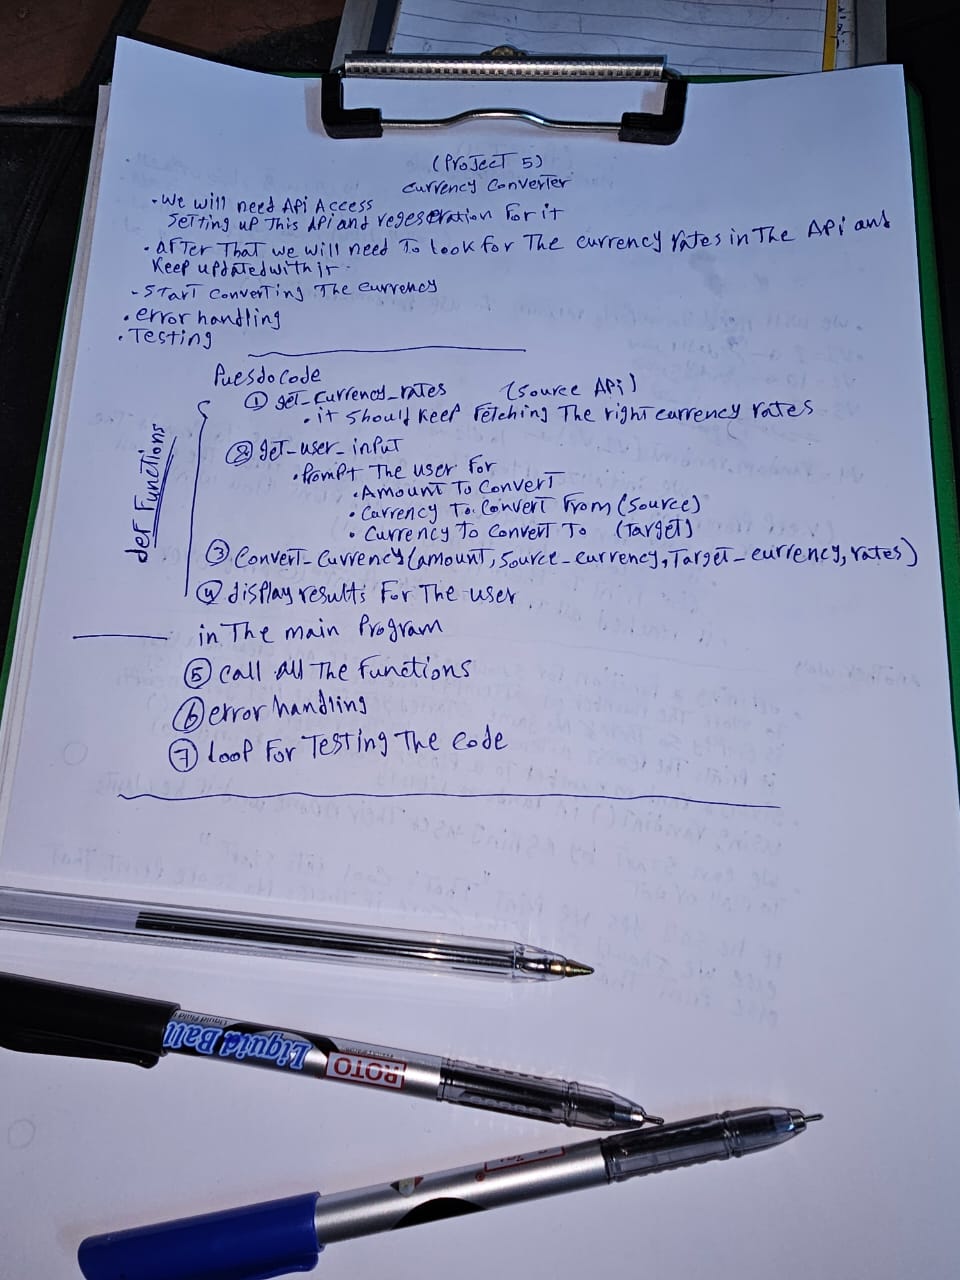 (Project 5)
Currency Converter
• We will need Api Access
Setting up This Api and regeseration For it
• After That we will need To look for The currency rates in The Api and
Keep updated with it.
- Start converting The currency
• error handling
• Testing
Puesdocode
def Functions
① get_currency_rates (Source API)
• it should keep Fetching The right currency rates
② get_user_input
• Prompt The user For
• Amount To Convert
• Currency To Convert From (Source)
• Currency To Convert To (Target)
③ Convert_Currency(amount, Source_currency, Target_currency, rates)
④ display results For The user
in The main Program
⑤ Call all The Functions
⑥ error handling
⑦ loop For Testing The Code
Liquid Ball
ROTO